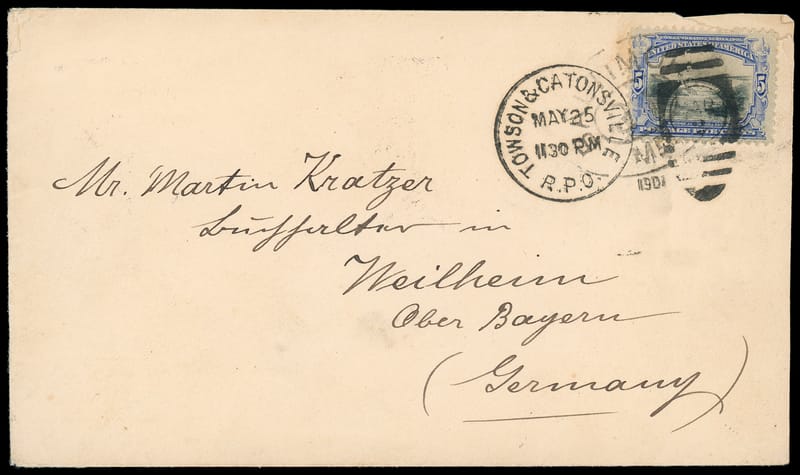 UNITED STATES OF AMERICA
5 5
POSTAGE FIVE CENTS
TOWSON & CATONSVILLE
MAY 25
11 30 P.M.
R.P.O.
1901
Mr. Martin Kratzer
Buchhalter in
Weilheim
Ober Bayern
(Germany)